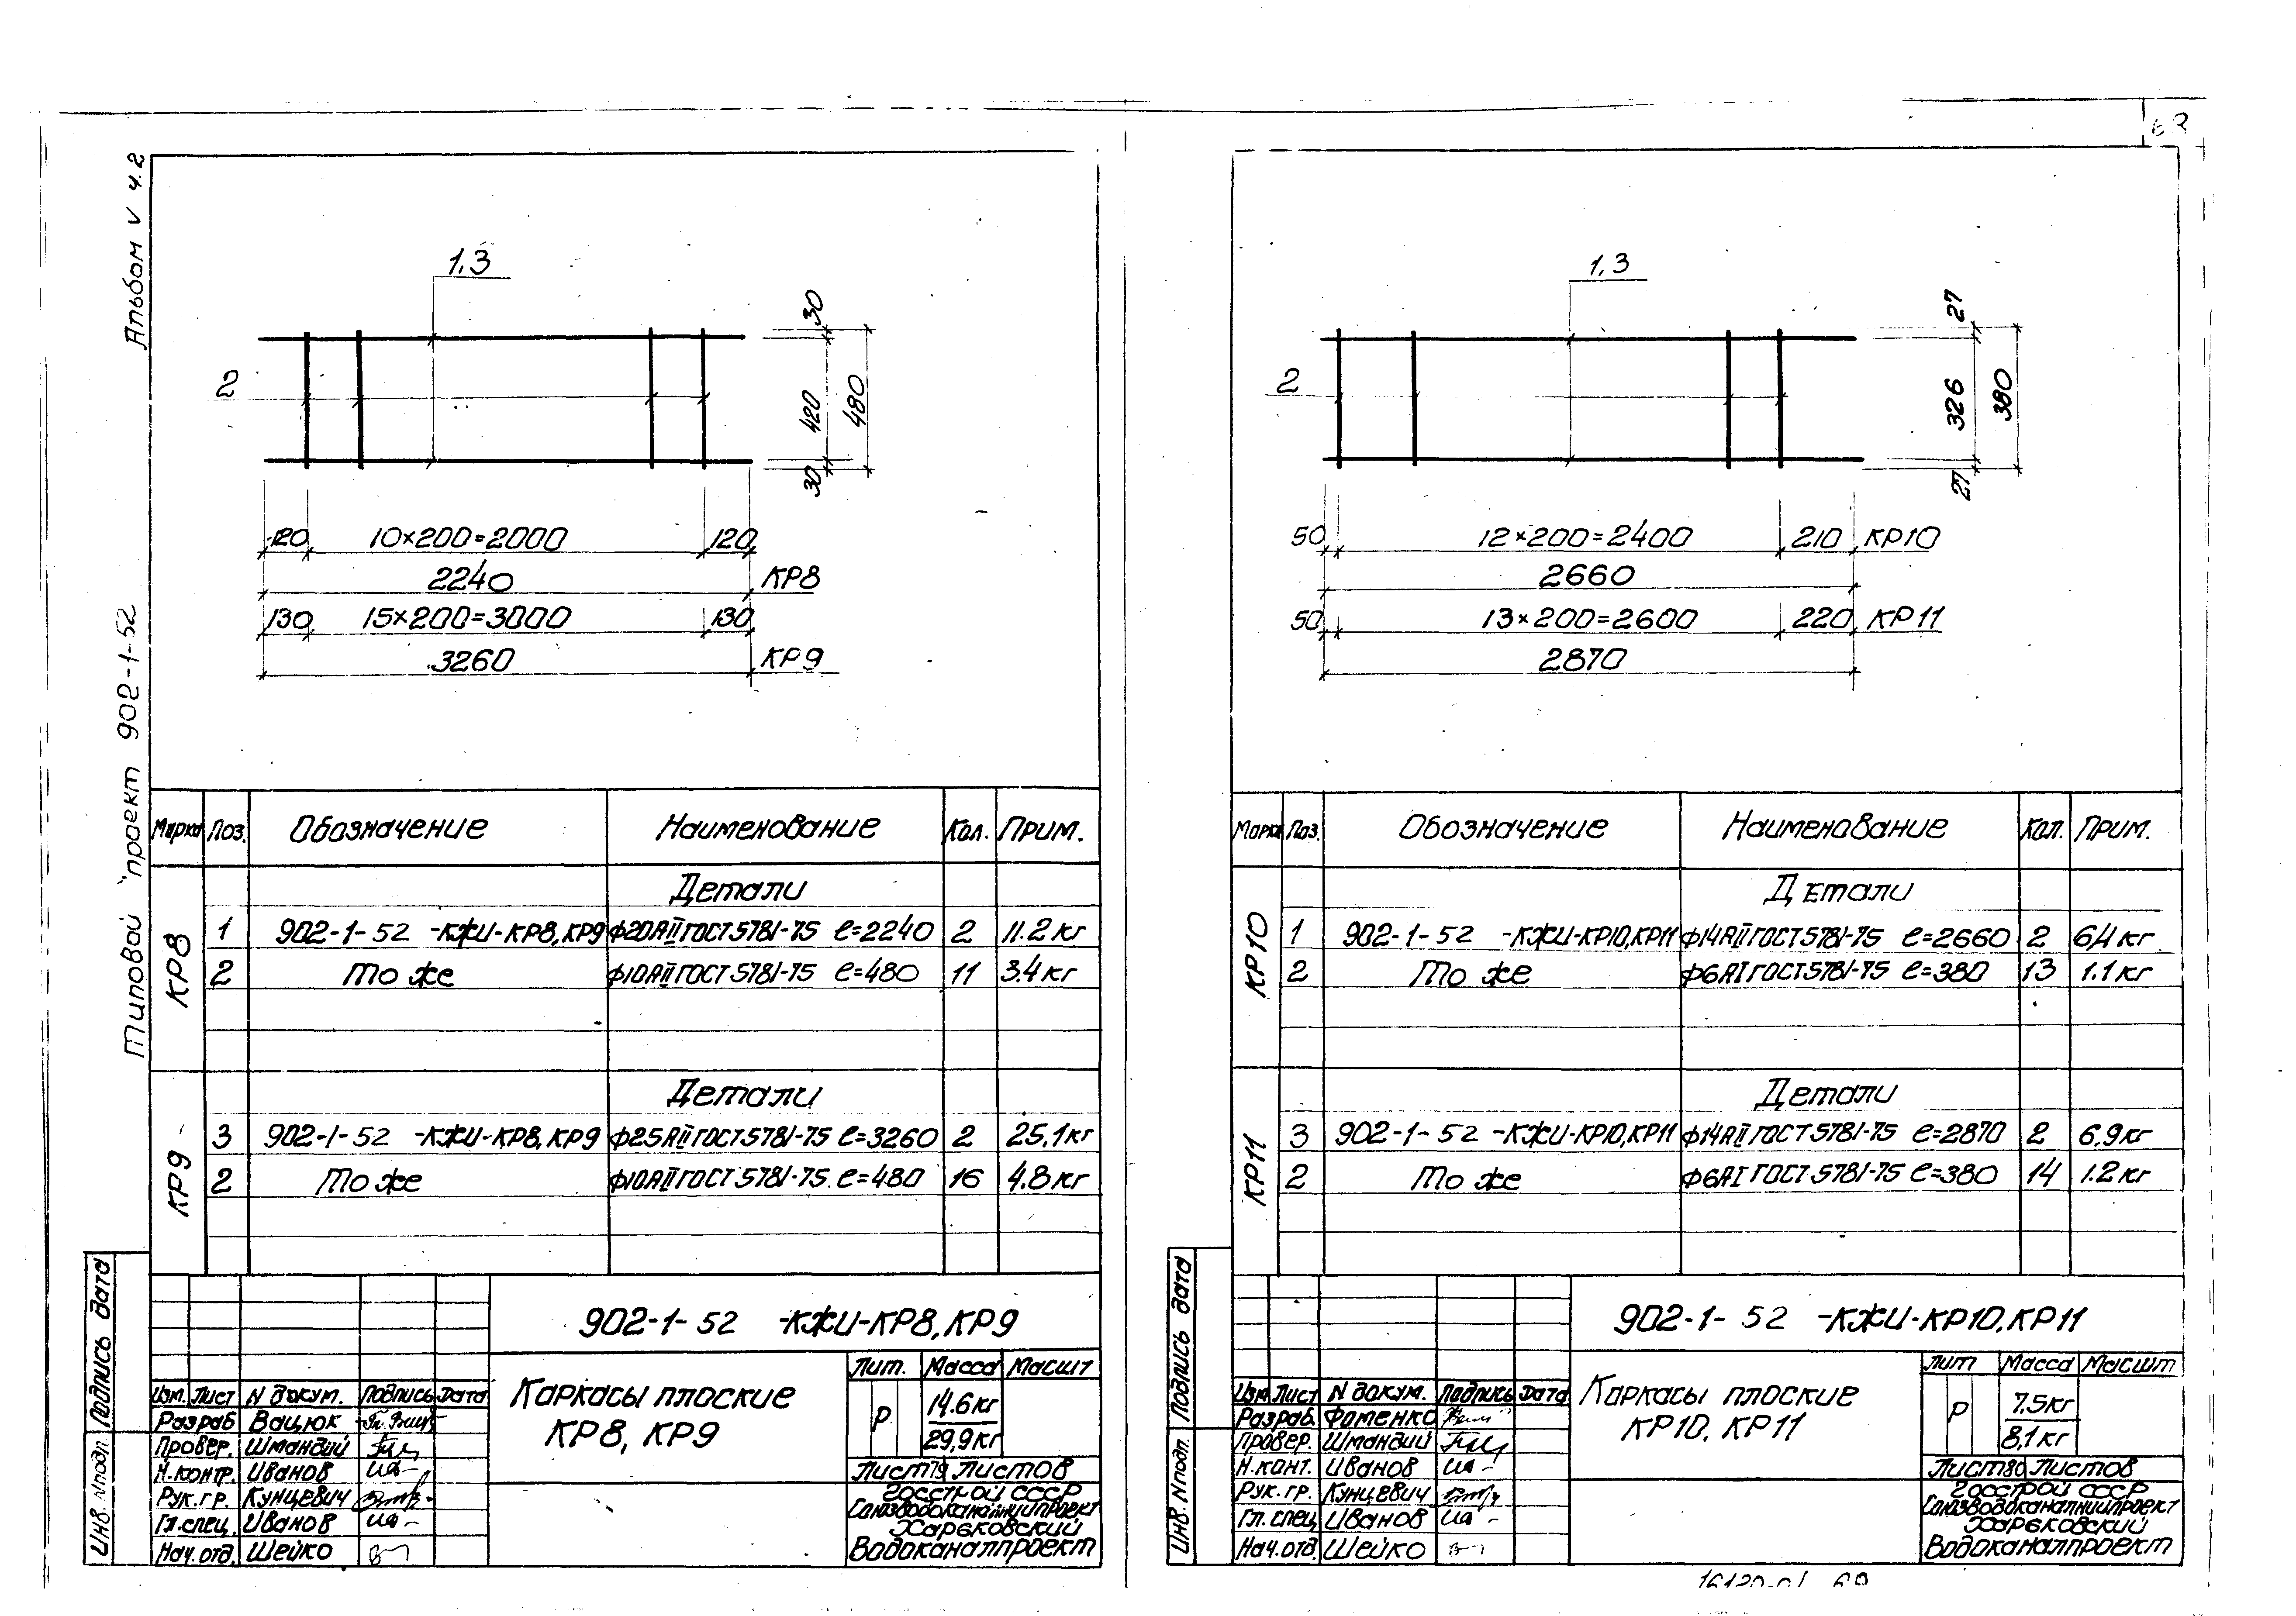 Альбом V ч.2
Типовой проект 902-1-52
1,3
2
30
420
30
480
120 10×200=2000 120
2240 КР8
130 15×200=3000 130
3260 КР9
Марка Поз. Обозначение Наименование Кол. Прим.
КР8
Детали
1 902-1-52 -КЖИ-КР8,КР9 ф20АII ГОСТ 5781-75 ℓ=2240 2 11.2 кг
2 То же ф10АII ГОСТ 5781-75 ℓ=480 11 3.4 кг
КР9
Детали
3 902-1-52 -КЖИ-КР8,КР9 ф25АII ГОСТ 5781-75 ℓ=3260 2 25,1 кг
2 То же ф10АII ГОСТ 5781-75 ℓ=480 16 4.8 кг
902-1-52 -КЖИ-КР8,КР9
Каркасы плоские
КР8, КР9
Лит. Масса Масшт
Р 14.6 кг
29,9 кг
Лист 79 Листов
Госстрой СССР
Союзводоканалниипроект
Харьковский
Водоканалпроект
Изм. Лист N докум. Подпись Дата
Разраб Вацюк
Провер. Шмандий
Н.контр. Иванов
Рук.гр. Кунцевич
Гл.спец. Иванов
Нач.отд. Шейко
Инв. N подл. Подпись дата
1,3
2
27
326
27
380
50 12×200=2400 210 КР10
2660
50 13×200=2600 220 КР11
2870
Марка Поз. Обозначение Наименование Кол. Прим.
КР10
Детали
1 902-1-52 -КЖИ-КР10,КР11 ф14АII ГОСТ 5781-75 ℓ=2660 2 6,4 кг
2 То же ф6АI ГОСТ 5781-75 ℓ=380 13 1.1 кг
КР11
Детали
3 902-1-52 -КЖИ-КР10,КР11 ф14АII ГОСТ 5781-75 ℓ=2870 2 6.9 кг
2 То же ф6АI ГОСТ 5781-75 ℓ=380 14 1.2 кг
902-1-52 -КЖИ-КР10,КР11
Каркасы плоские
КР10, КР11
Лит Масса Масшт
Р 7.5 кг
8,1 кг
Лист 80 Листов
Госстрой СССР
Союзводоканалниипроект
Харьковский
Водоканалпроект
Изм Лист N докум. Подпись Дата
Разраб. Фоменко
Провер. Шмандий
Н.конт. Иванов
Рук.гр. Кунцевич
Гл.спец Иванов
Нач.отд. Шейко
Инв. N подл. Подпись дата